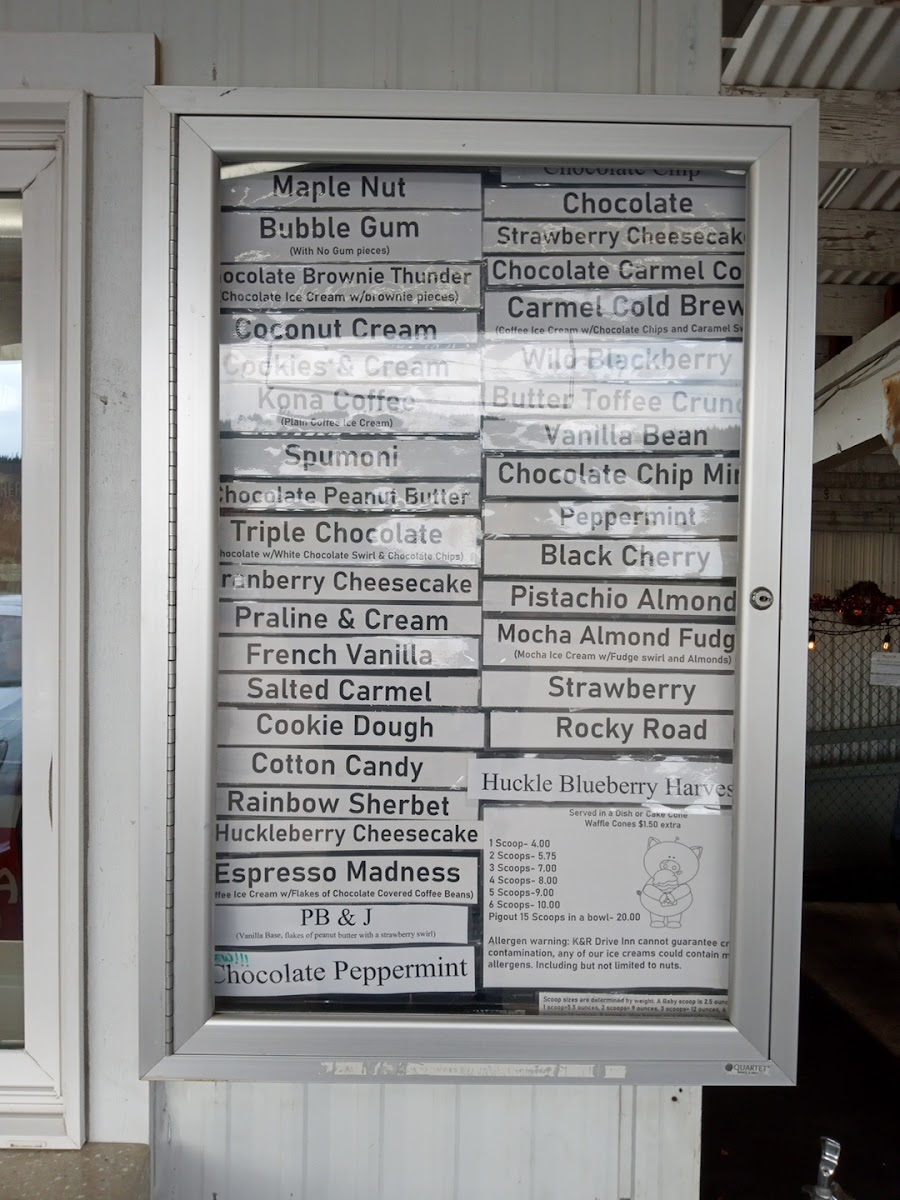 Maple Nut
Bubble Gum
(With No Gum pieces)
ocolate Brownie Thunder
Chocolate Ice Cream w/brownie pieces)
Coconut Cream
Cookies & Cream
Kona Coffee
(Plain Coffee Ice Cream)
Spumoni
Chocolate Peanut Butter
Triple Chocolate
hocolate w/White Chocolate Swirl & Chocolate Chips)
ranberry Cheesecake
Praline & Cream
French Vanilla
Salted Carmel
Cookie Dough
Cotton Candy
Rainbow Sherbet
Huckleberry Cheesecake
Espresso Madness
ffee Ice Cream w/Flakes of Chocolate Covered Coffee Beans)
PB & J
(Vanilla Base, flakes of peanut butter with a strawberry swirl)
EW!!!
Chocolate Peppermint
Chocolate Chip
Chocolate
Strawberry Cheesecak
Chocolate Carmel Co
Carmel Cold Brew
(Coffee Ice Cream w/Chocolate Chips and Caramel Sw
Wild Blackberry
Butter Toffee Crunc
Vanilla Bean
Chocolate Chip Min
Peppermint
Black Cherry
Pistachio Almond
Mocha Almond Fudg
(Mocha Ice Cream w/Fudge swirl and Almonds)
Strawberry
Rocky Road
Huckle Blueberry Harves
Served in a Dish or Cake Cone
Waffle Cones $1.50 extra
1 Scoop- 4.00
2 Scoops- 5.75
3 Scoops- 7.00
4 Scoops- 8.00
5 Scoops-9.00
6 Scoops- 10.00
Pigout 15 Scoops in a bowl- 20.00
Allergen warning: K&R Drive Inn cannot guarantee cr
contamination, any of our ice creams could contain m
allergens. Including but not limited to nuts.
Scoop sizes are determined by weight. A Baby scoop is 2.5 ounc
1 scoop=5.5 ounces, 2 scoops= 9 ounces, 3 scoops= 12 ounces, 4
QUARTET